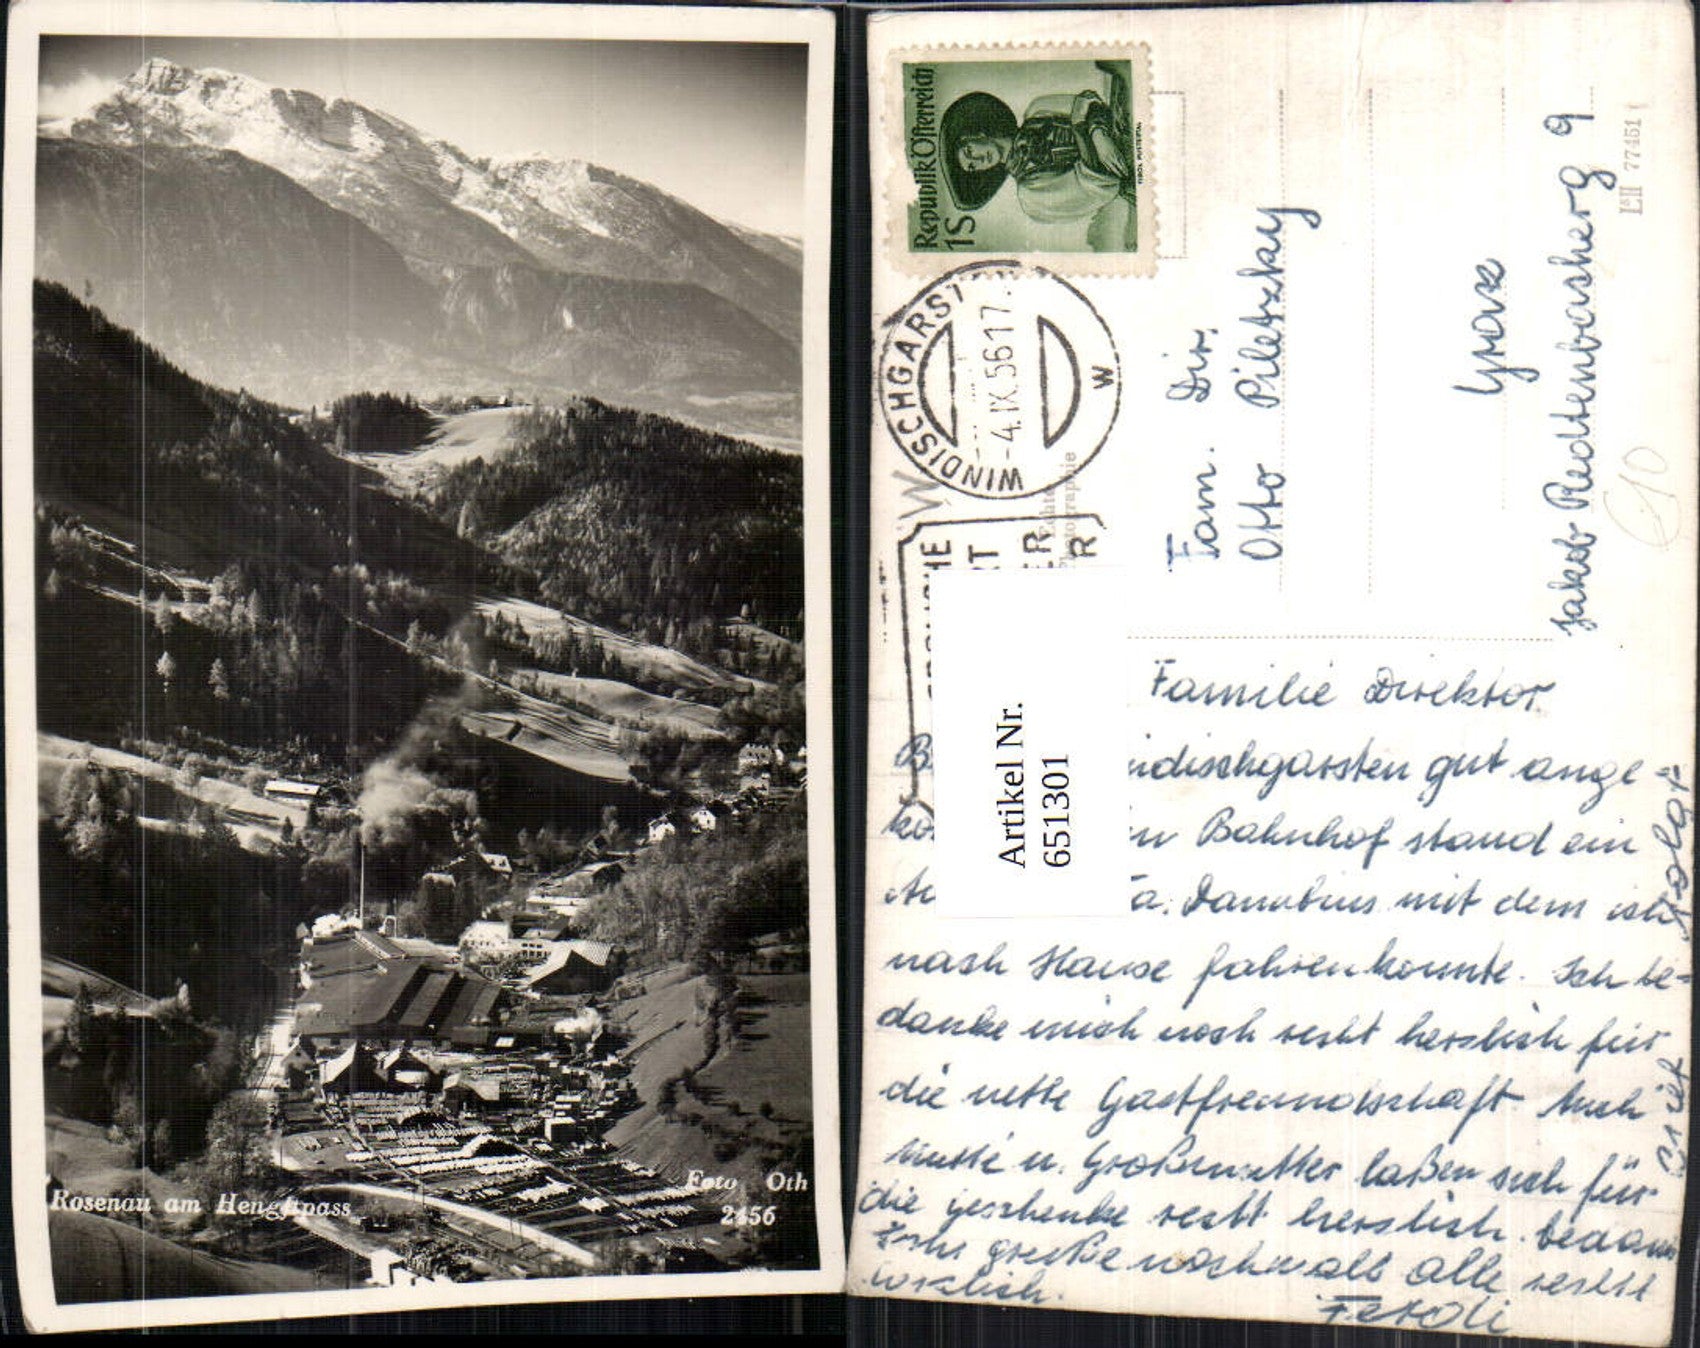 Rosenau am Hengstpass
Foto Oth
2456
Republik Österreich
1S
TIROL PUSTERTAL
WINDISCHGARST
-4.IX.56 17
W
Echte
Photographie
Artikel Nr.
651301
LII 77451
Fam. Dir.
Otto Piletzky
Graz
Jakob Redtenbachergg 9
€10
Familie Direktor
ndischgarsten gut ange=
ko n Bahnhof stand ein
a. Danubius mit dem ich
nach Hause fahren konnte. Ich be=
danke mich noch recht herzlich für
die nette Gastfreundschaft. Auch
Mutti u. Großmutter laßen sich für
die geschenke recht herzlich bedanken
grüße nochmals alle recht
herzlich.
Ferdi